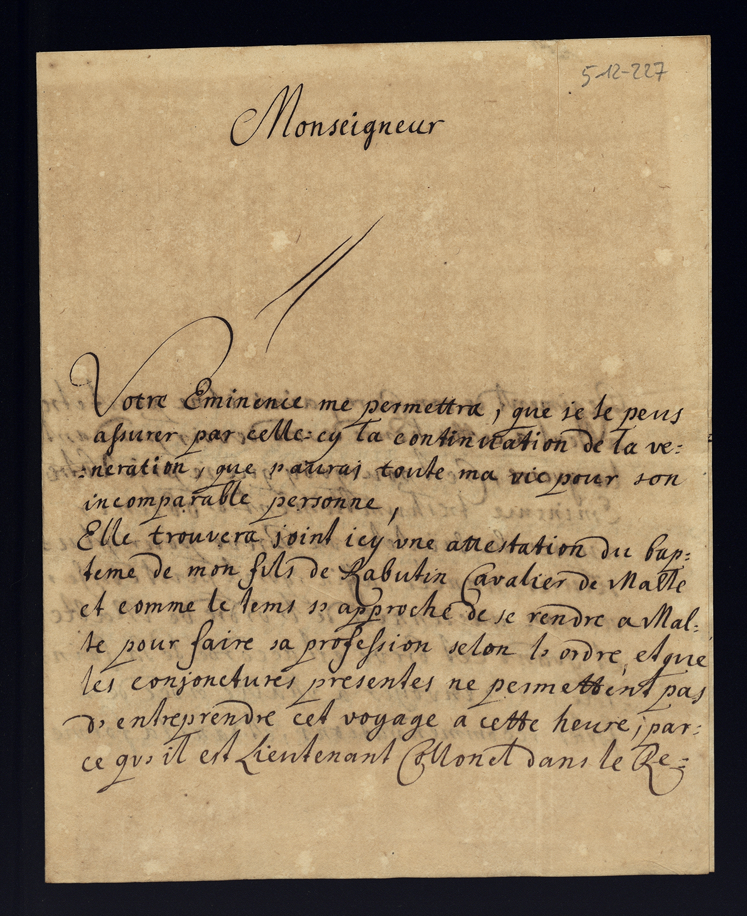 5-12-227
Monseigneur
Votre Eminence me permettra, que je le peus
assurer par celle-cy la continuation de la ve=
=neration, que j'aurai toute ma vie pour son
incomparable personne,
Elle trouvera joint icy vne attestation du bap=
teme de mon fils de Rabutin Cavalier de Malte
et comme le tems s'approche de se rendre a Mal=
te pour faire sa profession selon l'ordre, et que
les conjonctures presentes ne permettent pas
d'entreprendre cet voyage a cette heure; par=
ce qu'il est Lieutenant Collonel dans le Re=